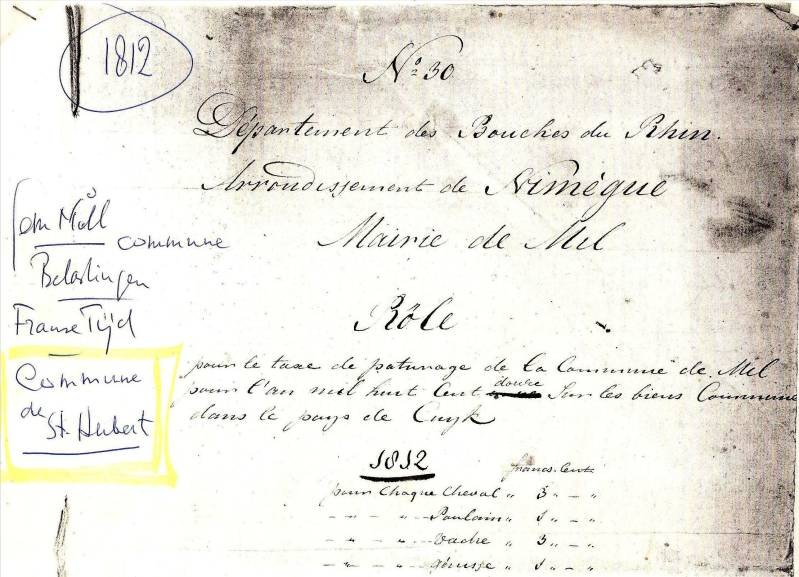 1812
No 30
Département des Bouches du Rhin.
Arrondissement de Nimègue
Mairie de Mil
commune
Belastingen
Franse Tijd
Commune
de
St. Hubert
Rôle
pour le taxe de paturage de la Commune de Mil
pour l'an mil huit Cent douze Sur les biens Commune
dans le pays de Cuyk
1812
francs. Cent.
pour Chaque Cheval „ 3 „ – „
– – „ Poulain „ 1 „ – „
– – „ Vache „ 3 „ – „
– – „ Génisse „ 1 „ – „